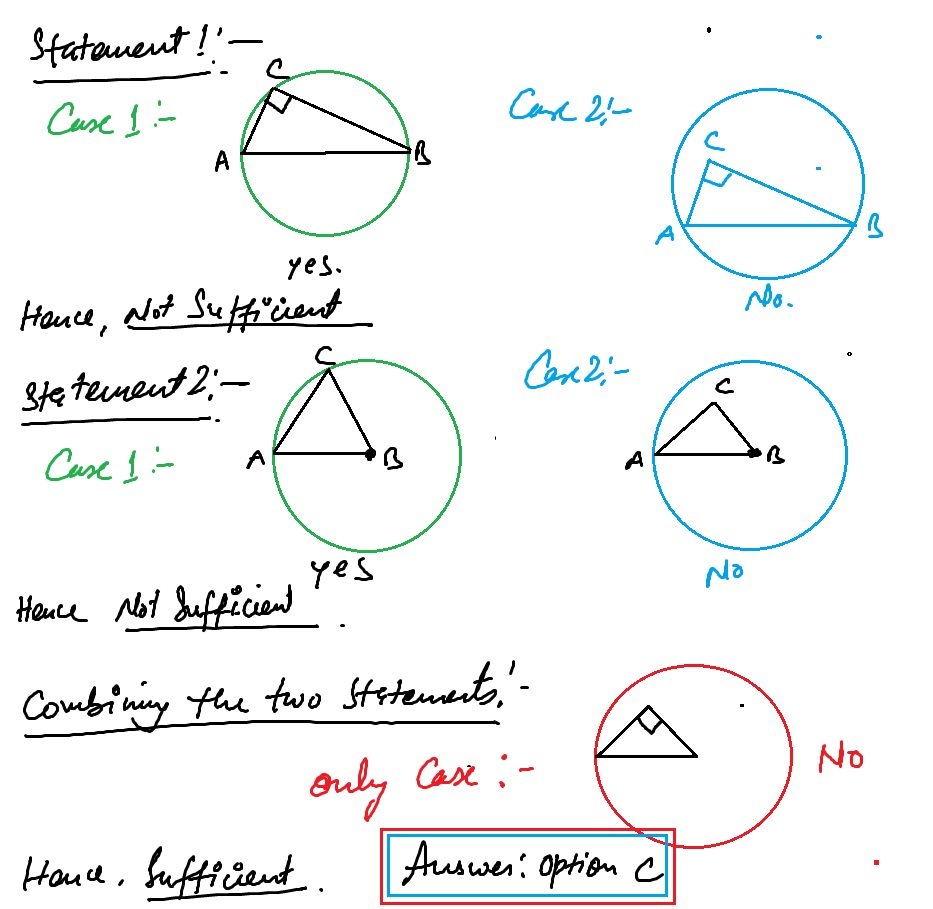 Statement 1:-
Case 1:-
C
A
B
yes.
Case 2:-
C
A
B
No.
Hence, Not Sufficient
Statement 2:-
Case 1:-
C
A
B
yes
Case 2:-
C
A
B
No
Hence Not Sufficient.
Combining the two Statements:-
only Case:-
No
Hence, Sufficient.
Answer: option C